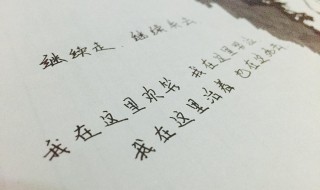 继续走 继续失去
我在这里欢笑 我在这里哭泣
我在这里活着 也在这死去